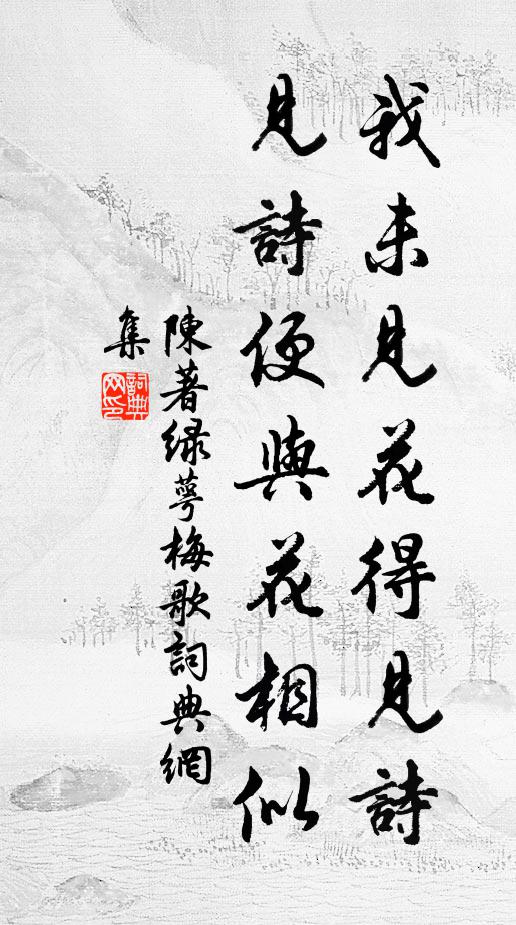 我未見花得見詩
見詩便與花相似
陳著綠萼梅歌詞典網
集
詞典
网印